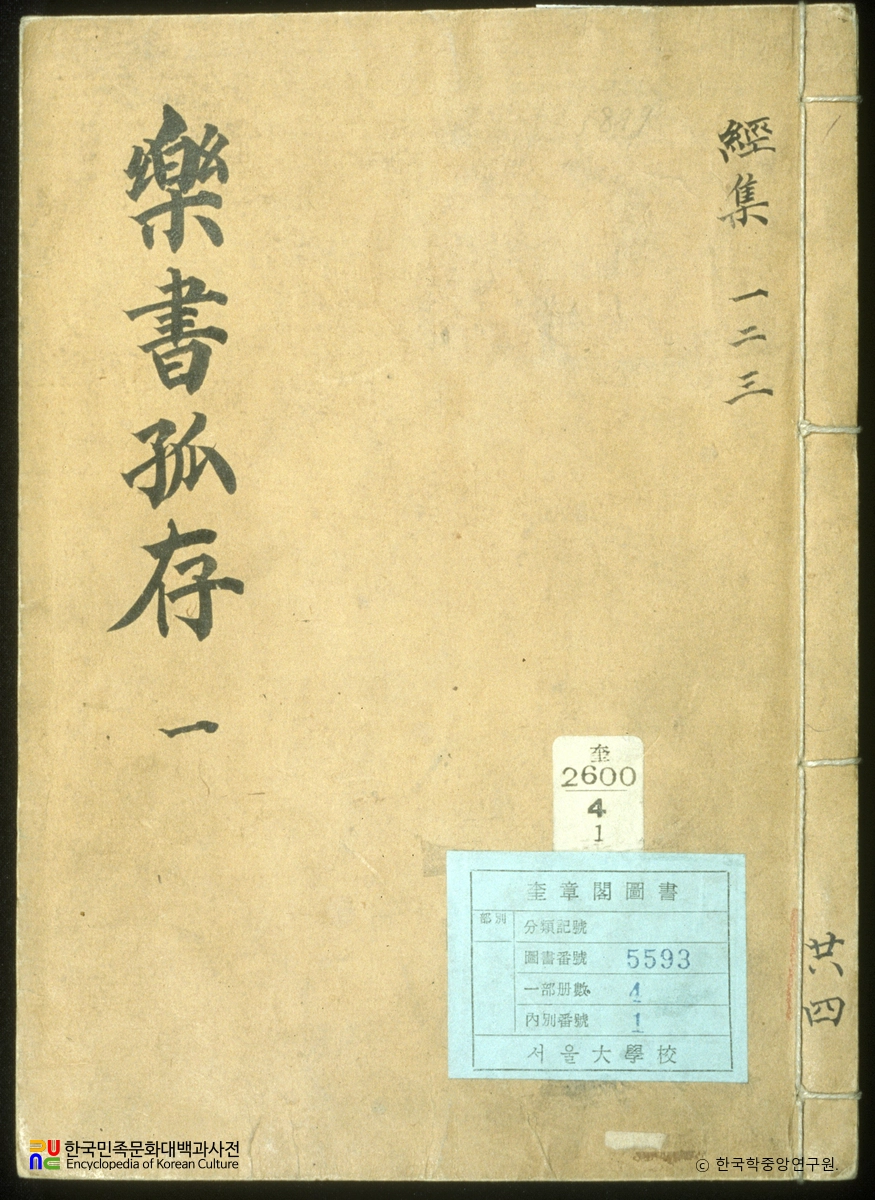 樂書孤存 一
經集 一二三
奎
2600
4
1
奎章閣圖書
部別
分類記號
圖書番號 5593
一部册數 4
內別番號 1
서울大學校
共四
한국민족문화대백과사전
Encyclopedia of Korean Culture
© 한국학중앙연구원